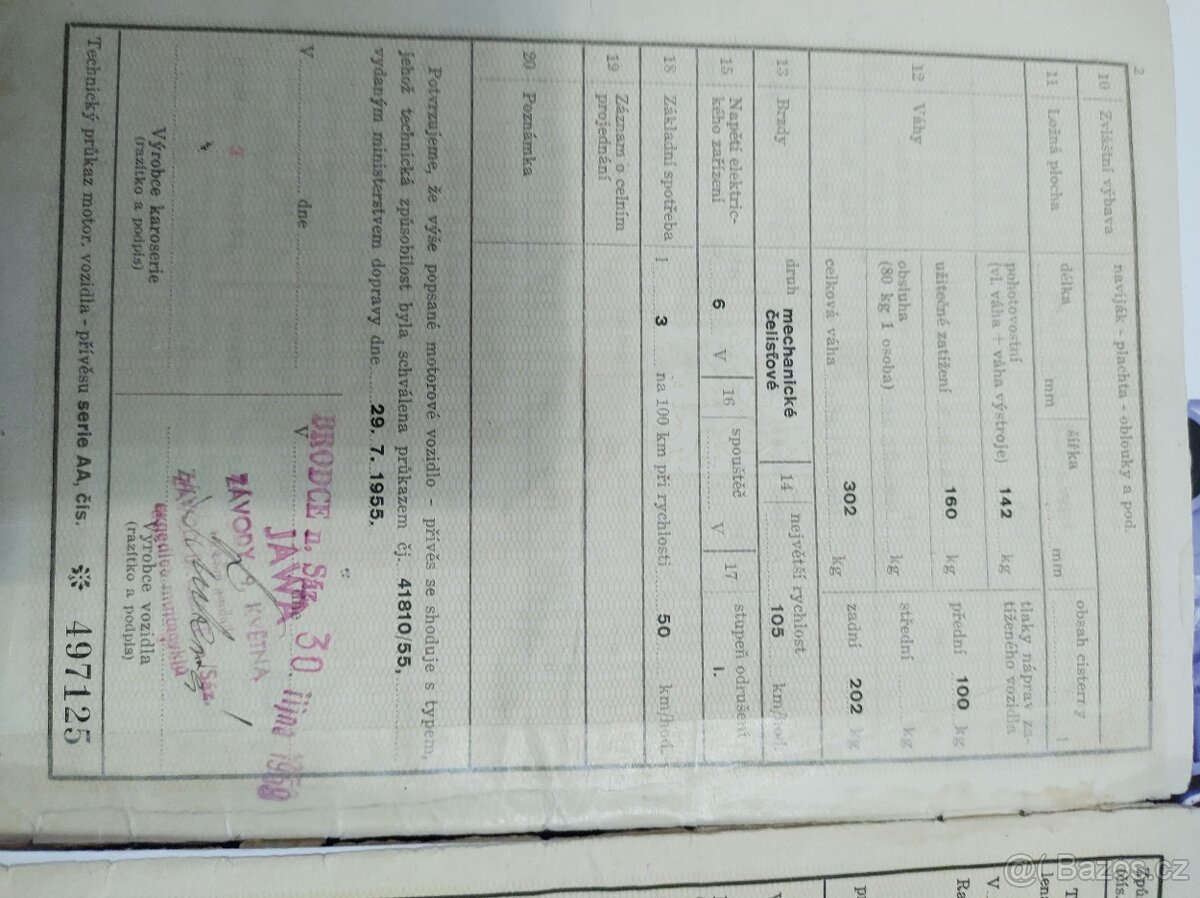 2
10 Zvláštní výbava naviják - plachta - oblouky a pod.
11 Ložná plocha délka mm šířka mm obsah cisterry l
12 Váhy pohotovostní (vl. váha + váha výstroje) 142 kg tlaky náprav zatíženého vozidla
užitečné zatížení 160 kg přední 100 kg
obsluha (80 kg 1 osoba) kg střední kg
celková váha 302 kg zadní 202 kg
13 Brzdy druh mechanické čelisťové 14 největší rychlost 105 km/hod.
15 Napětí elektrického zařízení 6 V 16 spouštěč V 17 stupeň odrušení I.
18 Základní spotřeba l 3 na 100 km při rychlosti 50 km/hod.
19 Záznam o celním projednání
20 Poznámka
Potvrzujeme, že výše popsané motorové vozidlo - přívěs se shoduje s typem,
jehož technická způsobilost byla schválena průkazem čj. 41810/55,
vydaným ministerstvem dopravy dne 29. 7. 1955.
V dne
V dne
BRODCE n. Sáz. 30. října
JAWA
ZÁVODY 9. KVĚTNA
Výrobce karoserie
(razítko a podpis)
Výrobce vozidla
(razítko a podpis)
Technický průkaz motor. vozidla - přívěsu serie AA, čís. 497125
Bazos.cz